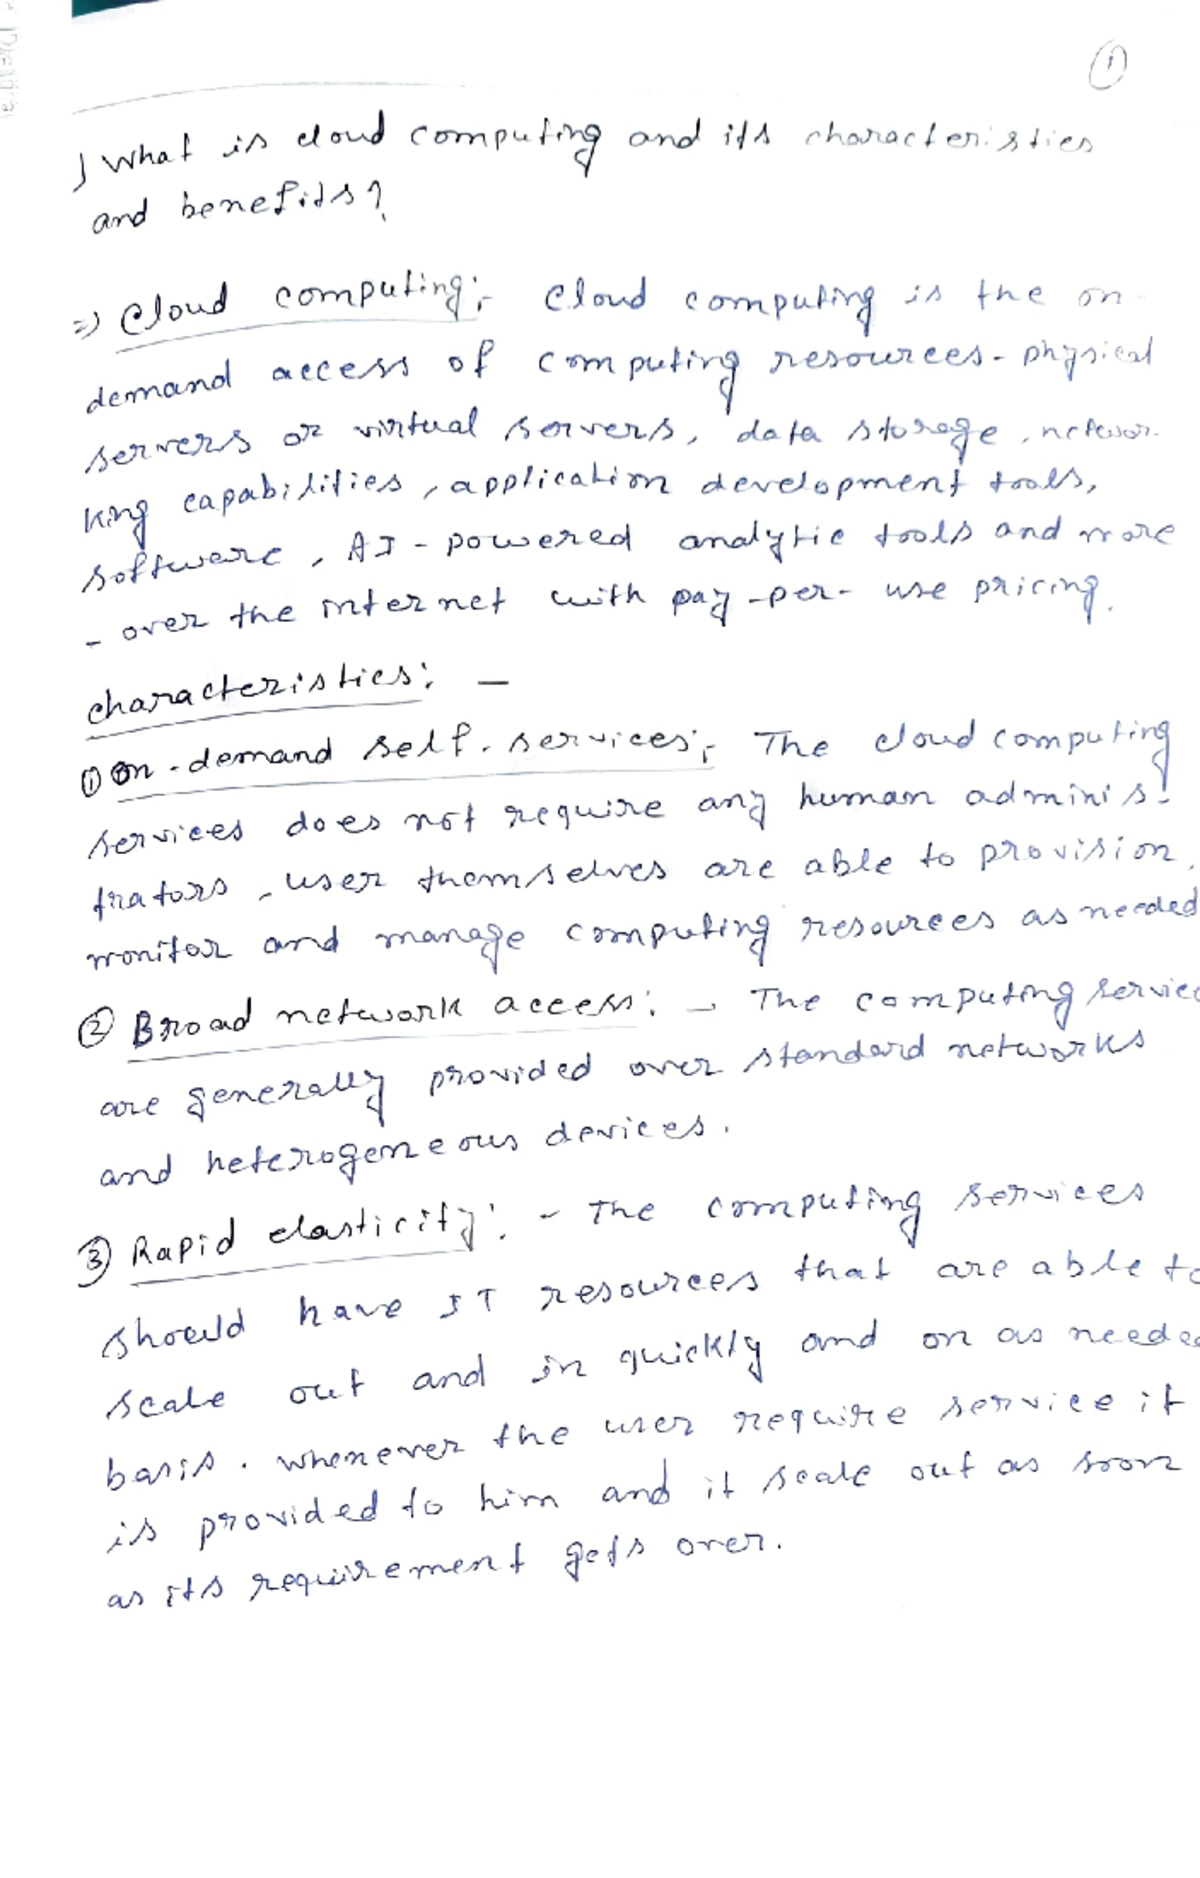 1
) What is cloud computing and its characteristics
and benefits?
=) Cloud computing:- Cloud computing is the on-
demand access of computing resources - physical
servers or virtual servers, data storage, networ-
king capabilities, application development tools,
software, AI - powered analytic tools and more
- over the internet with pay-per-use pricing.
characteristics: -
① On-demand self-services:- The cloud computing
services does not require any human adminis-
trators, user themselves are able to provision,
monitor and manage computing resources as needed
② Broad network access: - The computing servic
are generally provided over standard networks
and heterogeneous devices.
③ Rapid elasticity: - The computing services
should have IT resources that are able to
scale out and in quickly and on as neede
basis. whenever the user require service it
is provided to him and it scale out as soon
as its requirement gets over.